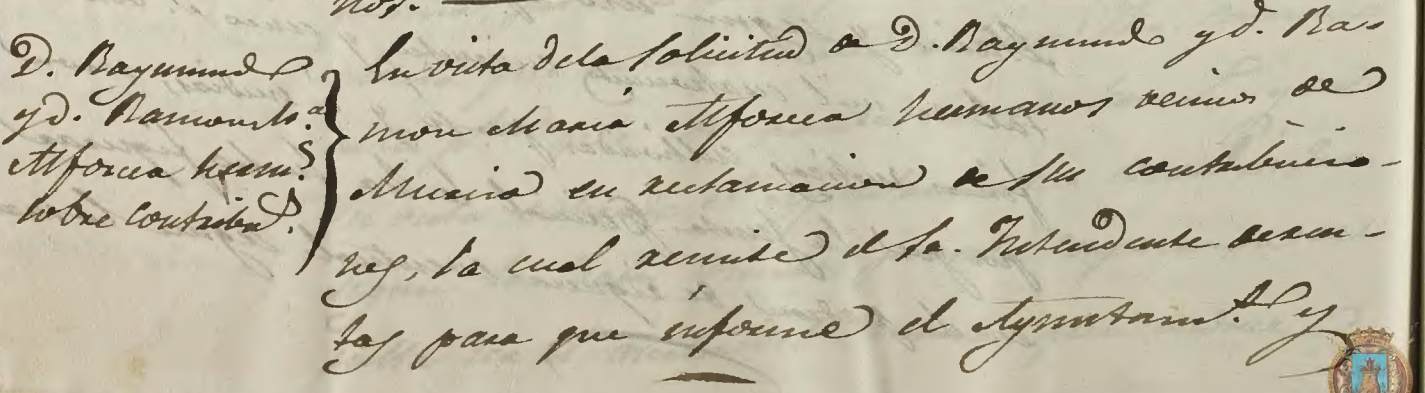 nos.
D. Raymundo
y d. Ramon M.ª
Alfocea herm.s
sobre contribu.s
En vista de la solicitud de D. Raymundo y d. Ra-
mon Maria Alfocea hermanos vecinos de
Murcia en reclamacion de sus contribucio-
nes, la cual remite el Sr. Intendente de ren-
tas para que informe el Ayuntam.to y